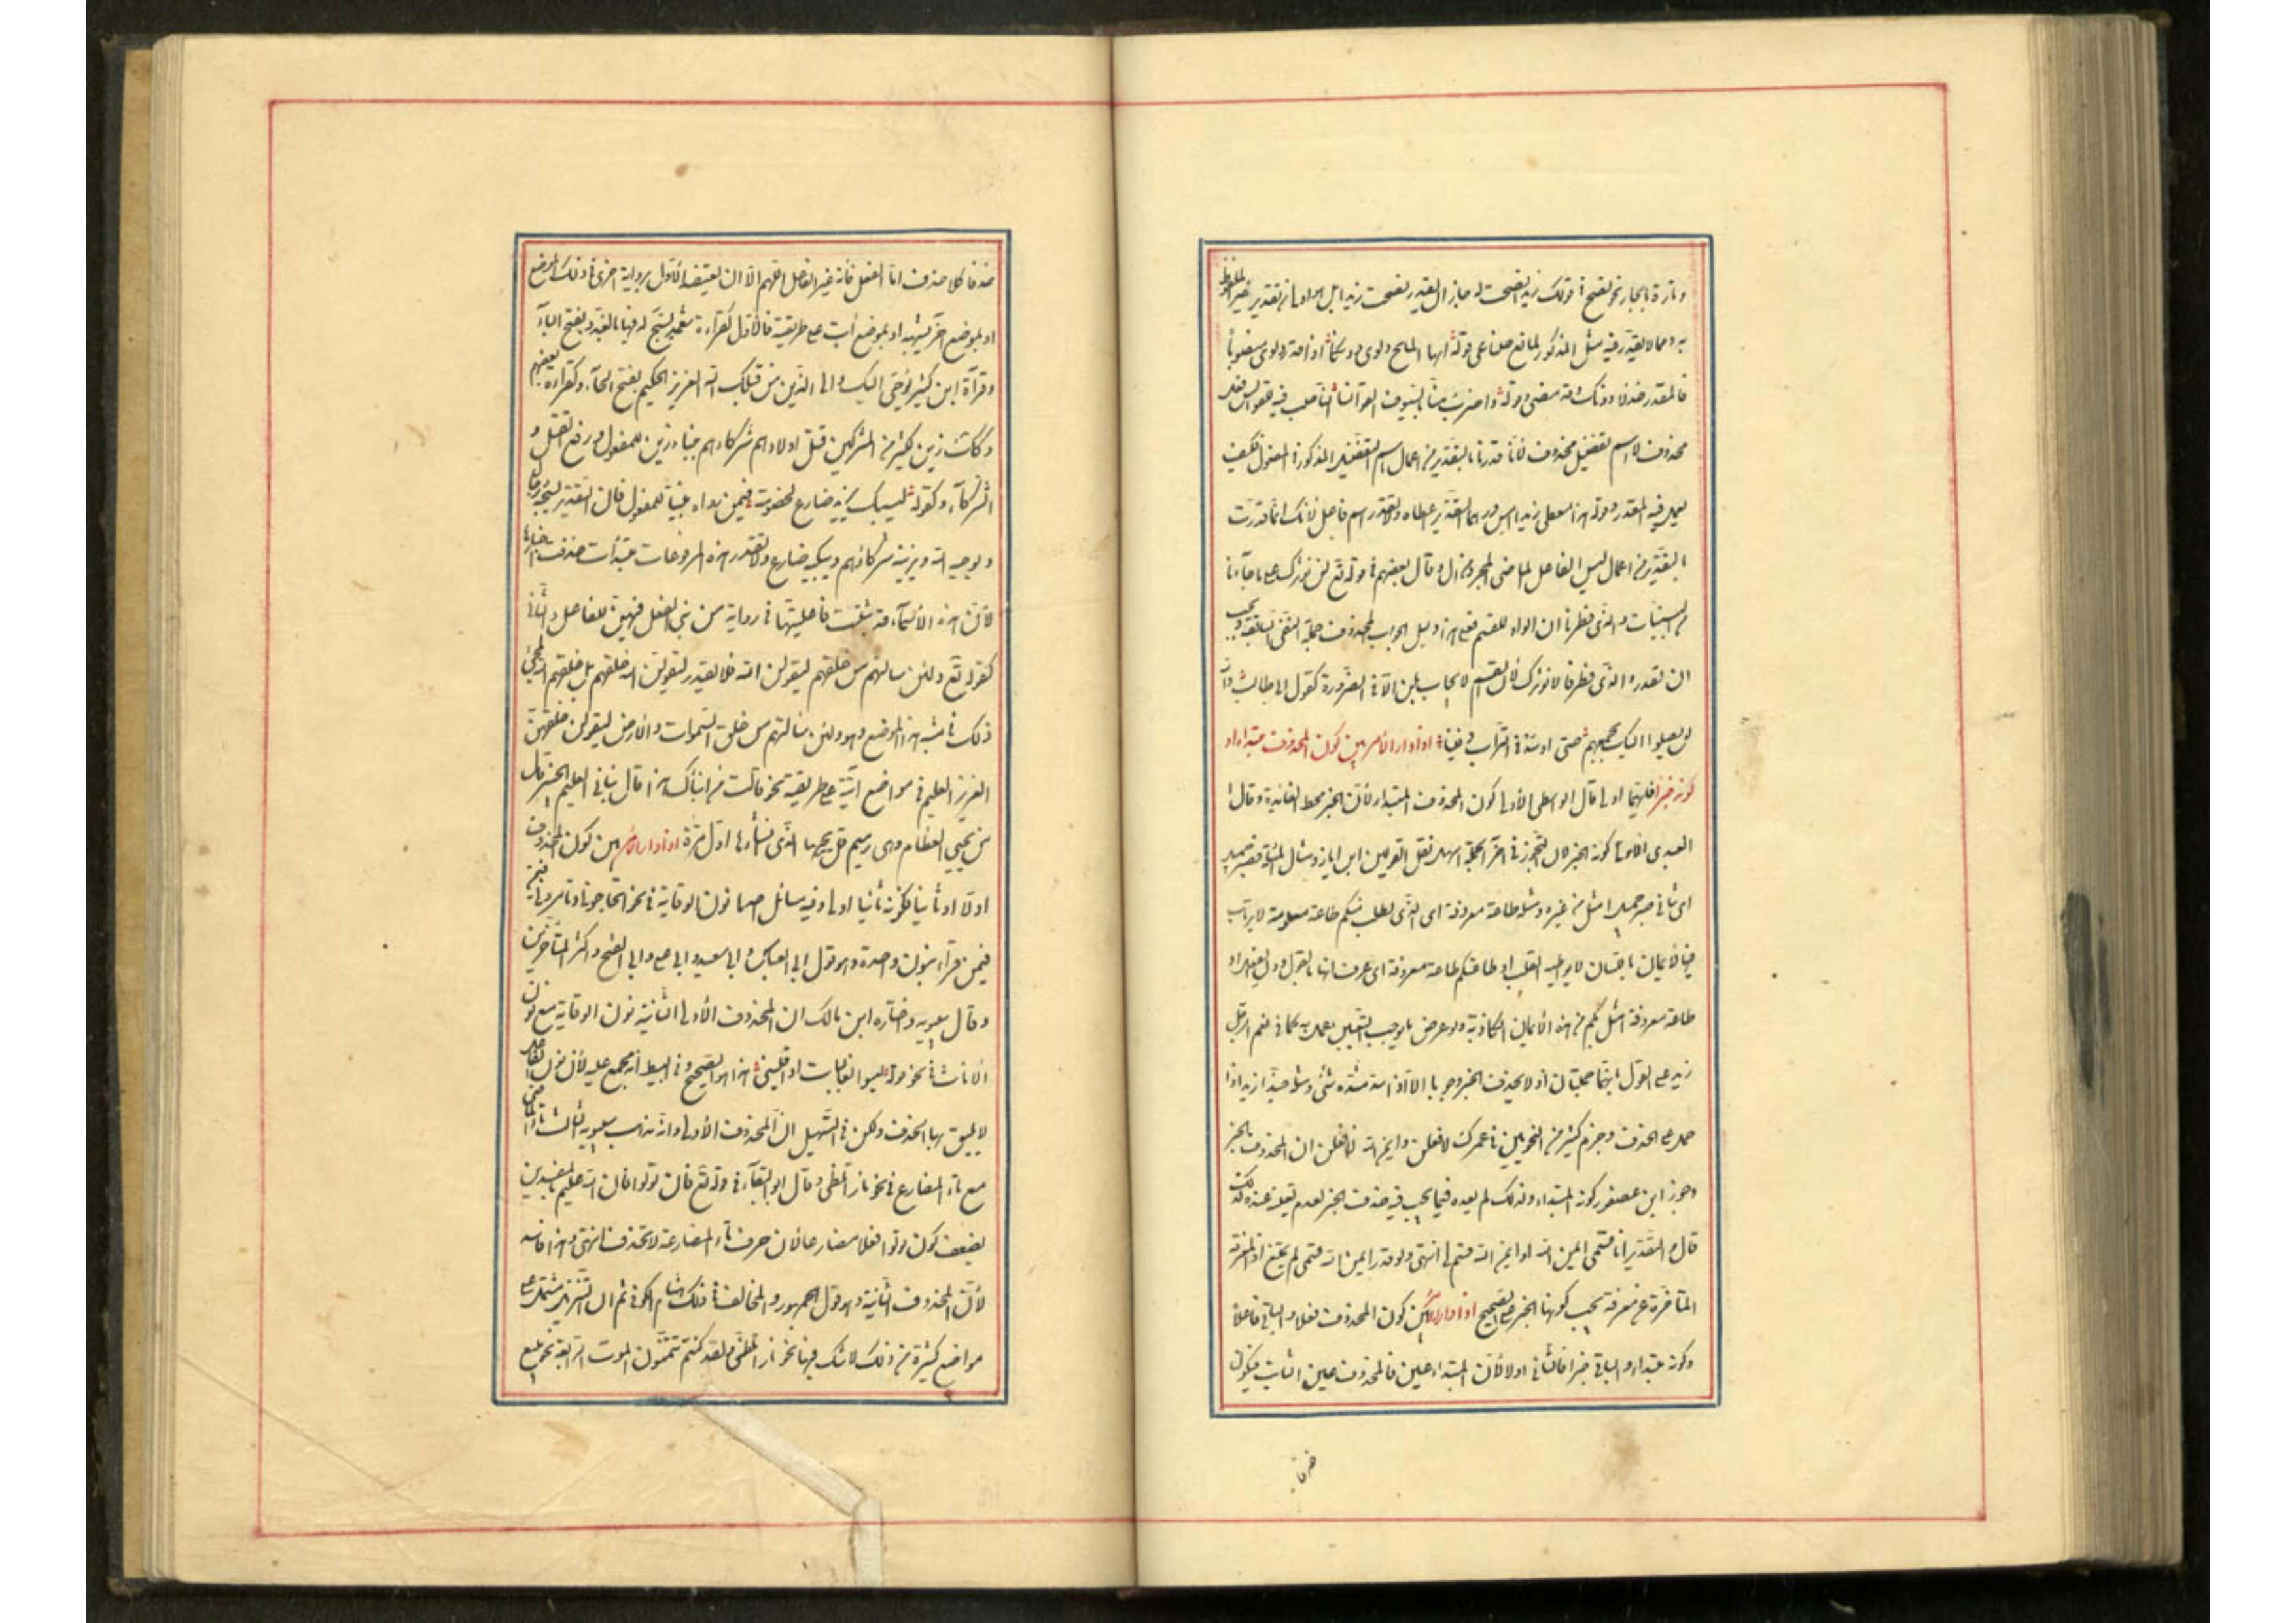 وتارة بالجار نحو نصح في قولك زيدا نصحت له جاز ان يقدر نصحت زيدا بل هو اولى من تقدير غير الملفوظ
به ومما لا يقدر فيه مثل المذكور لمانع صناعي قوله ايها المائح دلوي دونكا اذا قدر دلوي منصوبا
فالمقدر خذ لا دونك وقد مضى وقوله واضرب منا بالسيوف القوانسا الناصب فيه للقوانس فعل
محذوف لا اسم تفضيل محذوف لأنا فررنا بالتقدير من اعمال اسم التفضيل المذكور في المفعول فكيف
يعمل فيه المقدر وقوله هذا معطى زيد امس درهما التقدير اعطاه ولا يقدر اسم فاعل لانك انما فررت
بالتقدير من اعمال اسم الفاعل الماضى المجرد من ال وقال بعضهم في قوله تع لن نؤثرك على ما جاءنا
من البينات والذى فطرنا ان الواو للقسم فعلى هذا دليل الجواب المحذوف جملة النفى السابقة ويجب
ان تقدر والذى فطرنا لا نؤثرك لأن القسم لا يجاب بلن الا في الضرورة كقول ابى طالب والله
لن يصلوا اليك بجمعهم حتى اوسد في التراب دفينا اذا دار الأمر بين كون المحذوف مبتداء او
كونه خبرا فايهما اولى قال الواسطى الأولى كون المحذوف المبتداء لأن الخبر محط الفائدة وقال
العبدى الأولى كونه الخبر لان التجوز في آخر الجملة اسهل نقل القولين ابن اياز ومثال المسئلة فصبر جميل
اى شانى صبر جميل امثل من غيره ومثله طاعة معروفة اى الذى يطلب منكم طاعة معلومة لا يرتاب
فيها لا ايمان باللسان لا يواطيه القلب او طاعتكم طاعة معروفة اى عرف انها بالقول دون الفعل او
طاعة معروفة امثل بكم من هذه الأيمان الكاذبة ولو عرض ما يوجب التعيين عمل به كما في نعم الرجل
زيد على القول بانهما جملتان اذ لا يحذف الخبر وجوبا الا اذا سد مسده شئ ومثله حبذا زيد اذا
حمل على الحذف وجزم كثير من النحويين في عمرك لافعلن وايمن الله لأفعلن ان المحذوف الخبر
وجوز ابن عصفور كونه المبتداء ولذلك لم يعده فيما يجب فيه حذف الخبر لعدم تعينه عنده لذلك
قال والتقدير اما قسمى ايمن الله او ايمن الله قسم لى انتهى ولو قدر ايمن الله قسمى لم يمتنع اذ المعرفة
المتاخرة عن معرفة يجب كونها الخبر على الصحيح اذا دار الأمر بين كون المحذوف فعلا والباقى فاعلا
وكونه مبتداء والباقى خبرا فالثانى اولى لأن المبتداء عين فالمحذوف عين الثابت فيكون
حذفا كلا حذف اما الفعل فأنه غير الفاعل اللهم الا ان يعتضد الأول برواية اخرى في ذلك الموضع
او بموضع آخر يشبهه او بموضع آت على طريقته فالأول كقراءة شعبة يسبح له فيها بالغدو بفتح الباء
وقرآة ابن كثير يوحى اليك والى الذين من قبلك الله العزيز الحكيم بفتح الحآء وكقراءة بعضهم
وكذلك زين لكثير من المشركين قتل اولادهم شركاءهم ببناء زين للمفعول ورفع القتل و
الشركآء وكقوله ليبك يزيد ضارع لخصومة فيمن رواه مبنيا للمفعول فان التقدير يسبحه رجال
ويوحيه الله وزينه شركاؤهم ويبكيه ضارع ولا تقدر هذه المرفوعات مبتدأت حذفت اخبارها
لأن هذه الأسمآء قد ثبتت فاعليتها في رواية من بنى الفعل فيهن للفاعل والثانى
كقوله تع ولئن سالتهم من خلقهم ليقولن الله فلا يقدر ليقولن الله خلقهم بل خلقهم الله لمجئ
ذلك في شبه هذا الموضع وهو ولئن سالتهم من خلق السموات والأرض ليقولن خلقهن
العزيز العليم وفي مواضع آتية على طريقته نحو قالت من انبأك هذا قال نبانى العليم الخبير قال
من يحيى العظام وهى رميم قل يحييها الذى انشأها اول مرة اذا دار الأمر بين كون المحذوف
اولا او ثانيا فكونه ثانيا اولى وفيه مسائل احدها نون الوقاية في نحو اتحاجونا وتامرونى
فيمن قرأ بنون واحدة وهو قول ابى العباس وابى سعيد وابى على وابى الفتح واكثر المتأخرين
وقال سيبويه واختاره ابن مالك ان المحذوف الأولى الثانية نون الوقاية مع نون
الاناث في نحو قوله يسوء الفاليات اذا فلينى هذا هو الصحيح وفي البسيط انه مجمع عليه لأن نون الفاعل
لا يليق بها الحذف ولكن في التسهيل ان المحذوف الأولى وانه مذهب سيبويه الثالث تاء الماضى
مع تاء المضارع في نحو نارا تلظى وقال ابو البقآء في قوله تع فان تولوا فان الله عليم بالمفسدين
يضعف كون تولوا فعلا مضارعا لأن حرف المضارعة لا تحذف انتهى وهذا فاسد
لأن المحذوف الثانية وهو قول الجمهور والمخالف في ذلك هشام الكوفى ثم ان التنزيل مشتمل على
مواضع كثيرة من ذلك لا شك فيها نحو نارا تلظى ولقد كنتم تمنون الموت الرابعة نحو مبيع